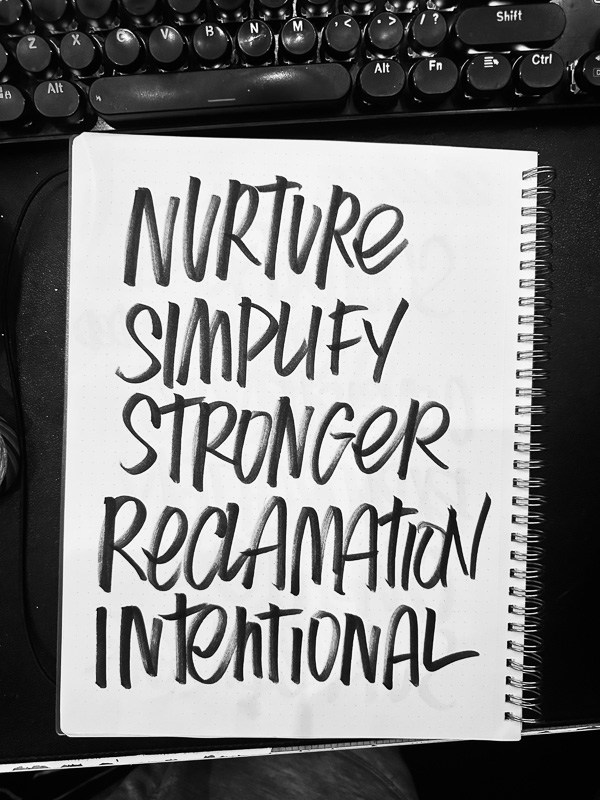 Z X C V B N M , < . > / ? Shift
Alt Alt Fn Ctrl
NURTURe
SIMPLIFY
STRONGeR
ReCLAMATiON
INTeNTiONAL